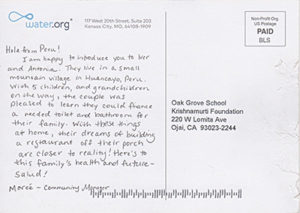 water.org
117 West 20th Street, Suite 203
Kansas City, MO 64108-1909
Non-Profit Org
US Postage
PAID
BLS
Hola from Peru!
I am happy to introduce you to
and. They live in a small
mountain village in Huancayo, Peru.
With 5 children, and grandchildren
on the way, the couple was
pleased to learn they could finance
a needed toilet and bathroom for
their family. With these things
at home, their dreams of building
a restaurant off their porch
are closer to reality! Here's to
this family's health and future-
Salud!
- Community Manager
Oak Grove School
Krishnamurti Foundation
220 W Lomita Ave
Ojai, CA 93023-2244